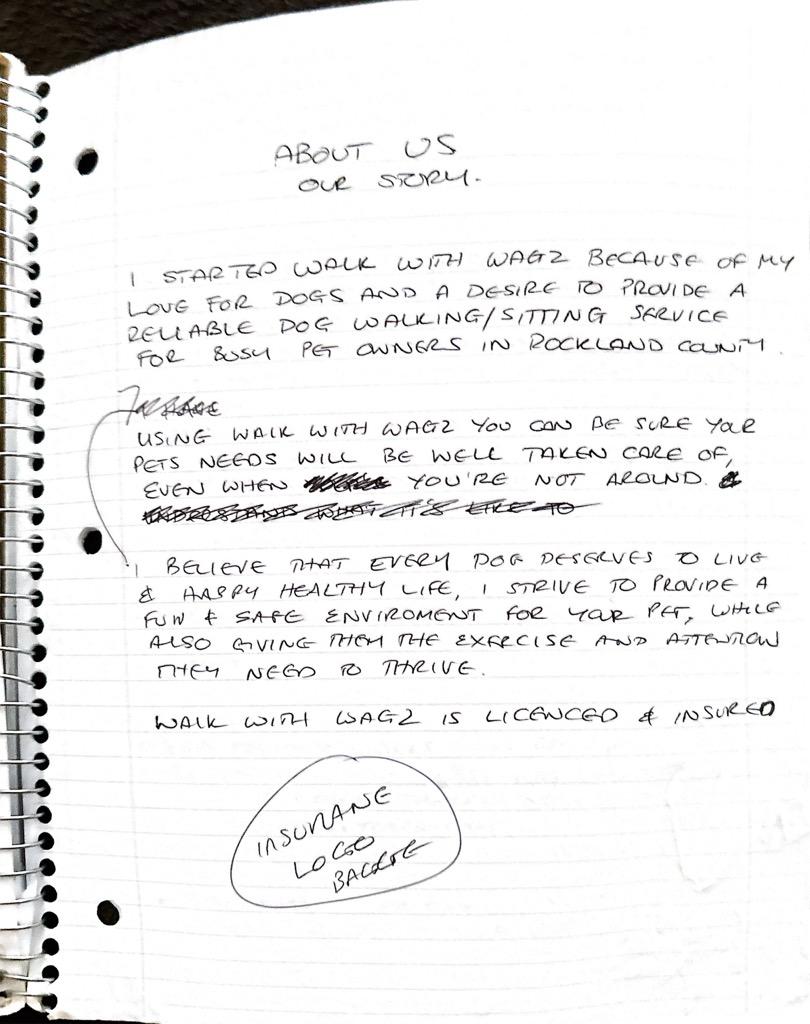 ABOUT US
OUR STORY.
I STARTED WALK WITH WAGZ BECAUSE OF MY
LOVE FOR DOGS AND A DESIRE TO PROVIDE A
RELIABLE DOG WALKING/SITTING SERVICE
FOR BUSY PET OWNERS IN ROCKLAND COUNTY.
USING WALK WITH WAGZ YOU CAN BE SURE YOUR
PETS NEEDS WILL BE WELL TAKEN CARE OF,
EVEN WHEN YOU'RE NOT AROUND.
WHAT IT'S LIKE TO
I BELIEVE THAT EVERY DOG DESERVES TO LIVE
& HAPPY HEALTHY LIFE, I STRIVE TO PROVIDE A
FUN & SAFE ENVIROMENT FOR YOUR PET, WHILE
ALSO GIVING THEM THE EXERCISE AND ATTENTION
THEY NEED TO THRIVE.
WALK WITH WAGZ IS LICENCED & INSURED
INSURANE
LOGO